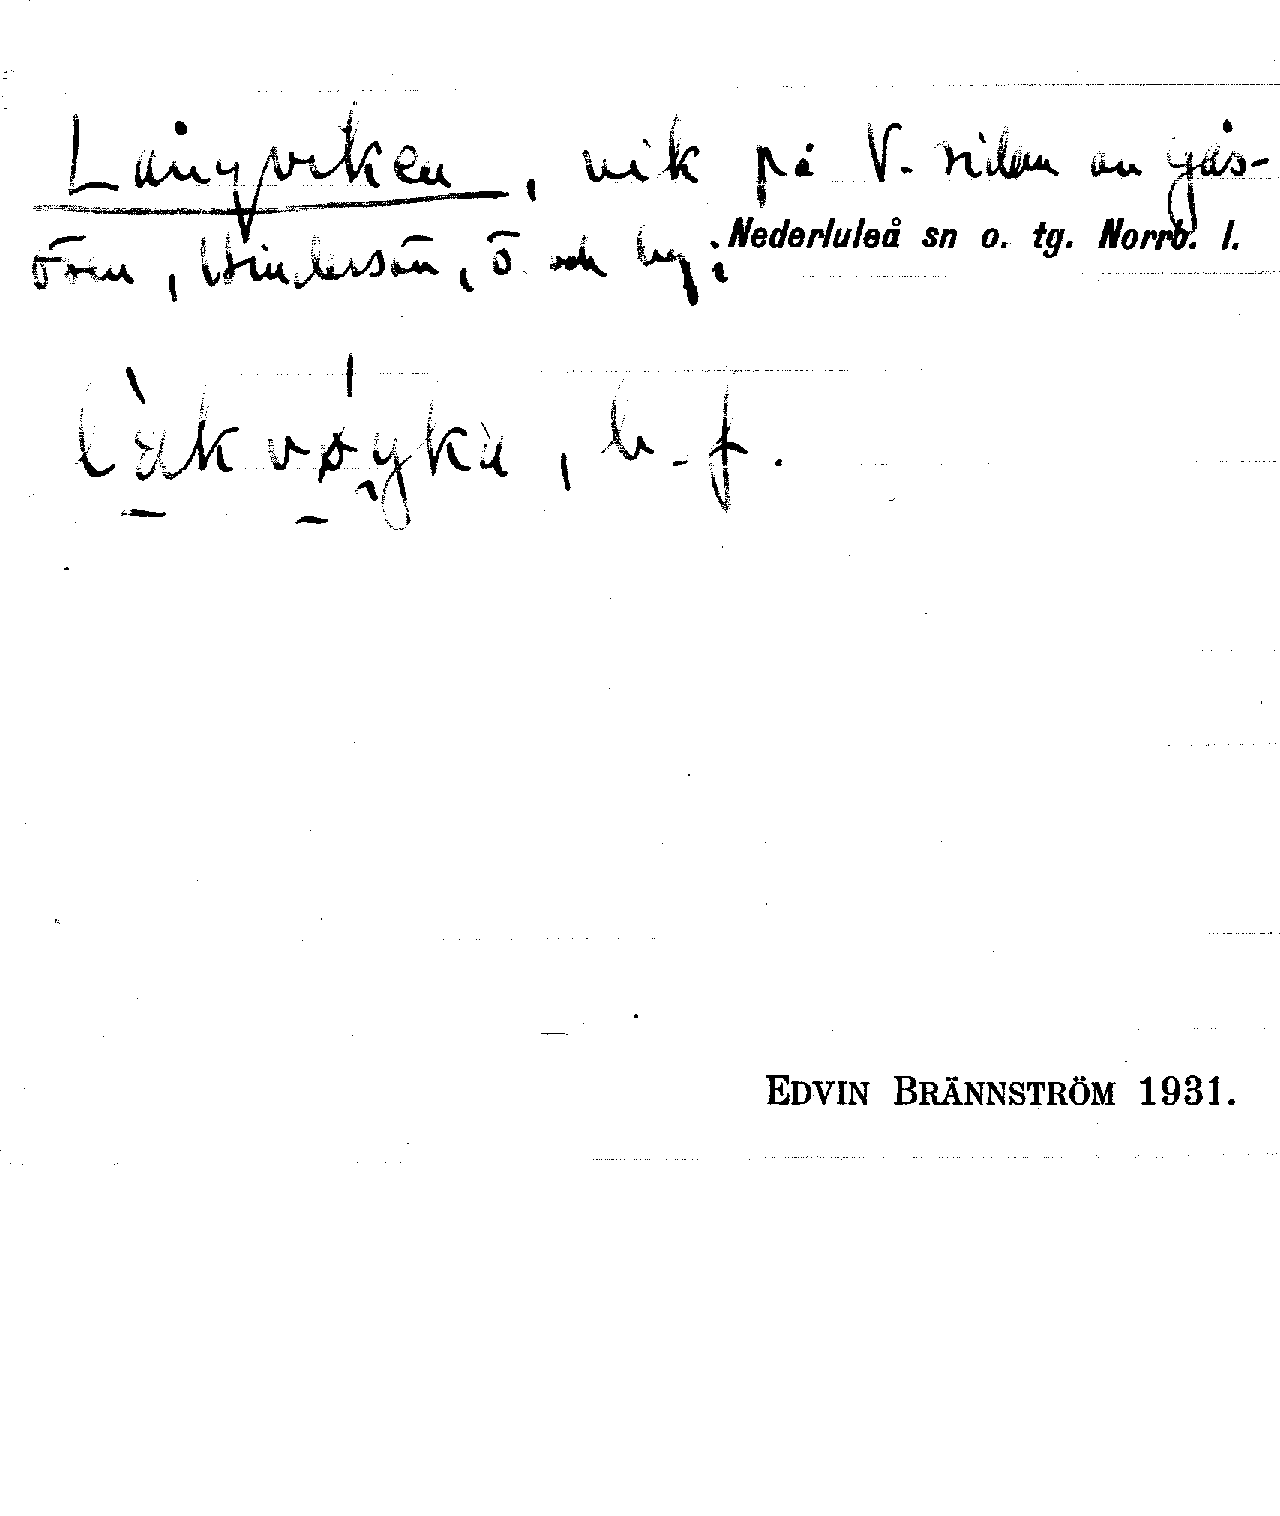 Långviken, vik på V. sidan av Gås-
ören, Hindersön, ö och by.
Nederluleå sn o. tg. Norrb. l.
b. f.
EDVIN BRÄNNSTRÖM 1931.